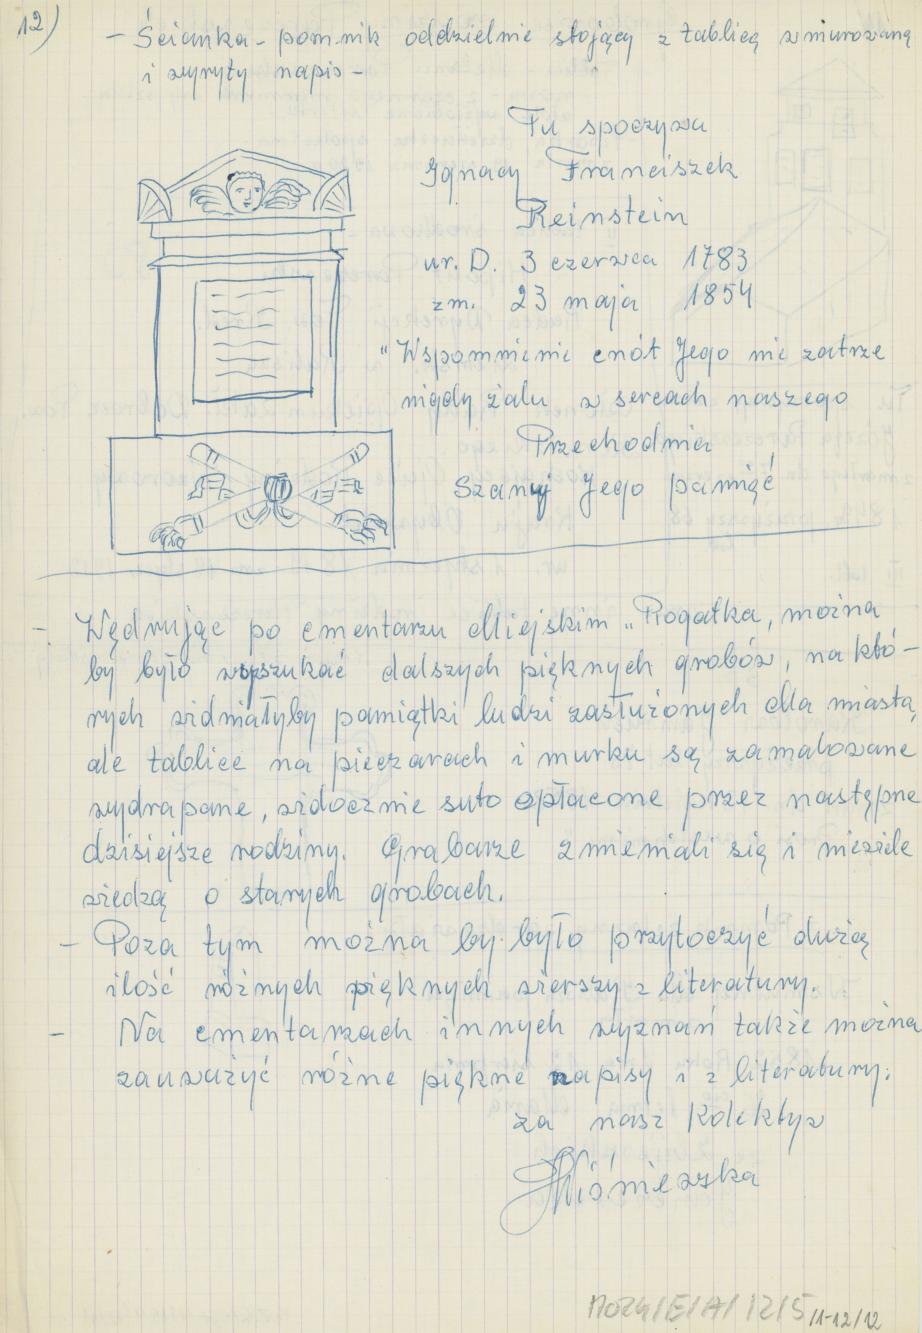 12)
- Ścianka - pomnik oddzielnie stojący z tablicą wmurowaną
i wyryty napis -
Tu spoczywa
Ignacy Franciszek
Reinstein
ur. D. 3 czerwca 1783
zm. 23 maja 1854
"Wspomnienie cnót Jego nie zatrze
nigdy żalu w sercach naszego
Przechodnia
Szanuj Jego pamięć
- Wędrując po cmentarzu Miejskim „Rogatka, można
by było wyszukać dalszych pięknych grobów, na któ-
rych widniałyby pamiątki ludzi zasłużonych dla miasta,
ale tablice na pieczarach i murku są zamalowane
wydrapane, widocznie suto opłacone przez następne
dzisiejsze rodziny. Grabarze zmieniali się i niewiele
wiedzą o starych grobach.
- Poza tym można by było przytoczyć dużą
ilość różnych pięknych wierszy z literatury.
- Na cmentarzach innych wyznań także można
zauważyć różne piękne napisy i z literatury.
za nasz Kolektyw
Wiśniewska
MOZN/E/A/12/5/1-12/12